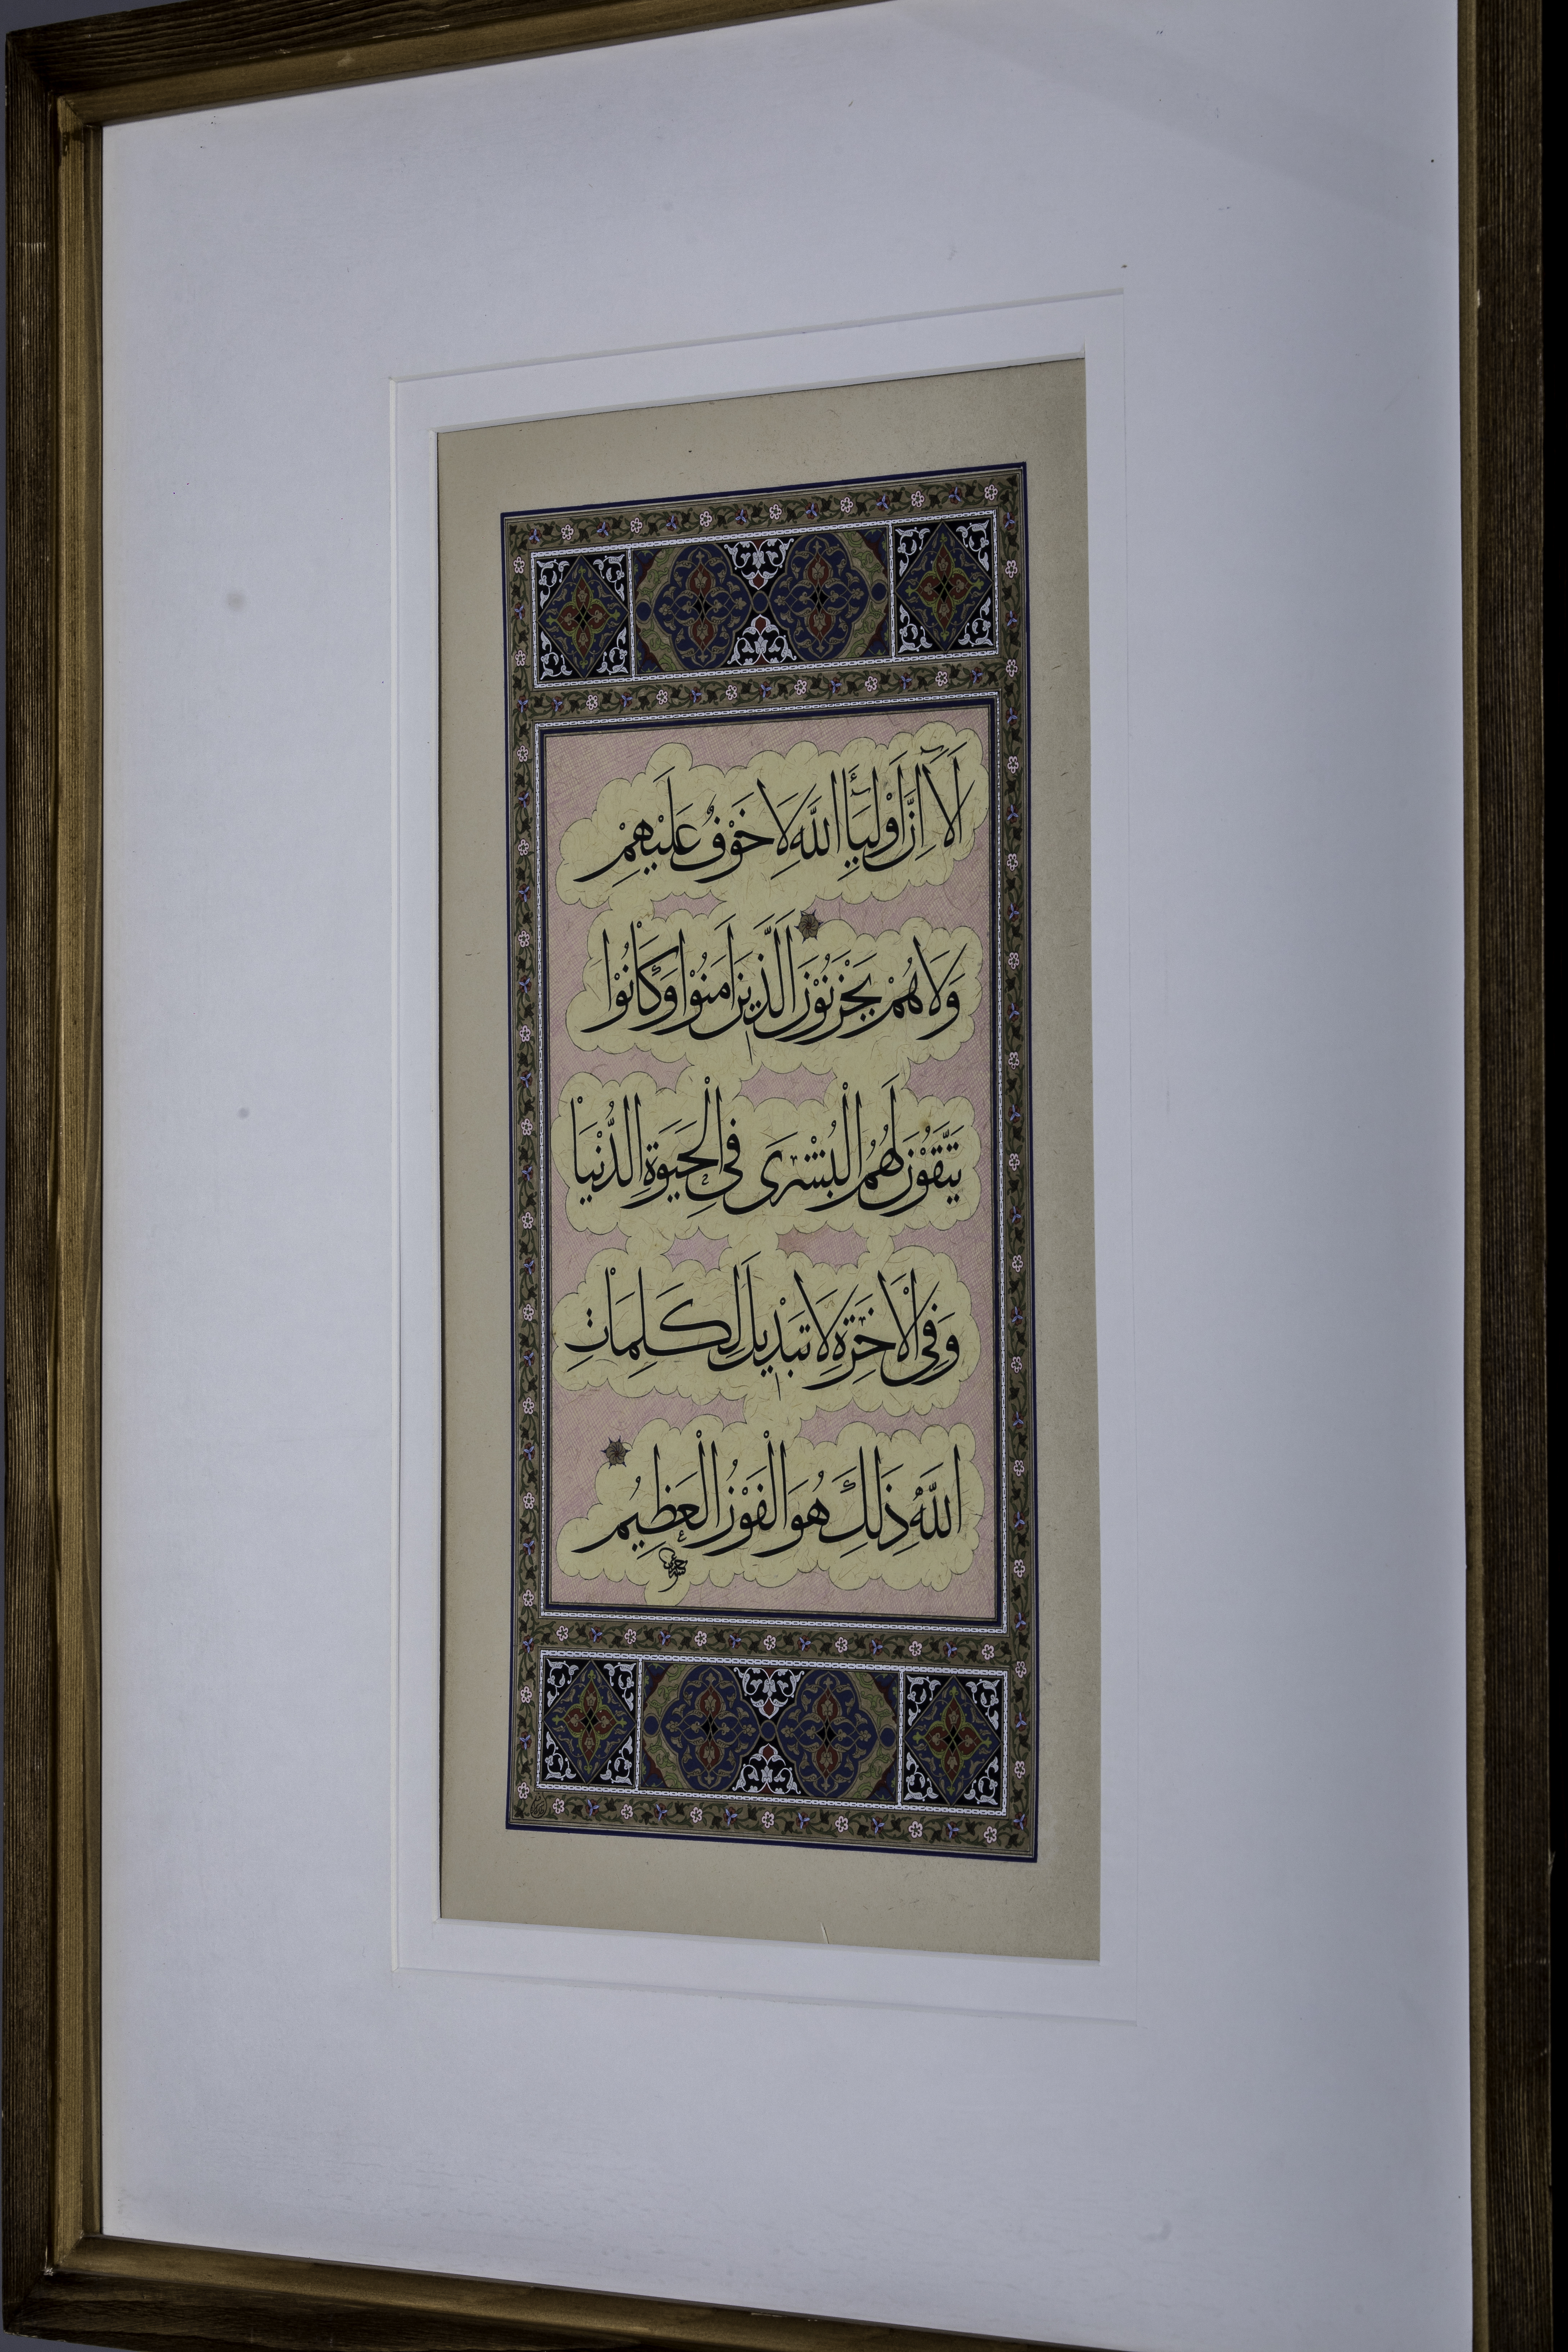 اَلَآ اِنَّ اَوْلِيَآءَ اللّٰهِ لَا خَوْفٌ عَلَيْهِمْ
وَلَا هُمْ يَحْزَنُوْنَ اَلَّذِينَ اٰمَنُوْا وَكَانُوْا
يَتَّقُوْنَ لَهُمُ الْبُشْرَى فِي الْحَيٰوةِ الدُّنْيَا
وَفِي الْاٰخِرَةِ لَا تَبْدِيلَ لِكَلِمَاتِ
اللّٰهِ ذٰلِكَ هُوَ الْفَوْزُ الْعَظِيمُ